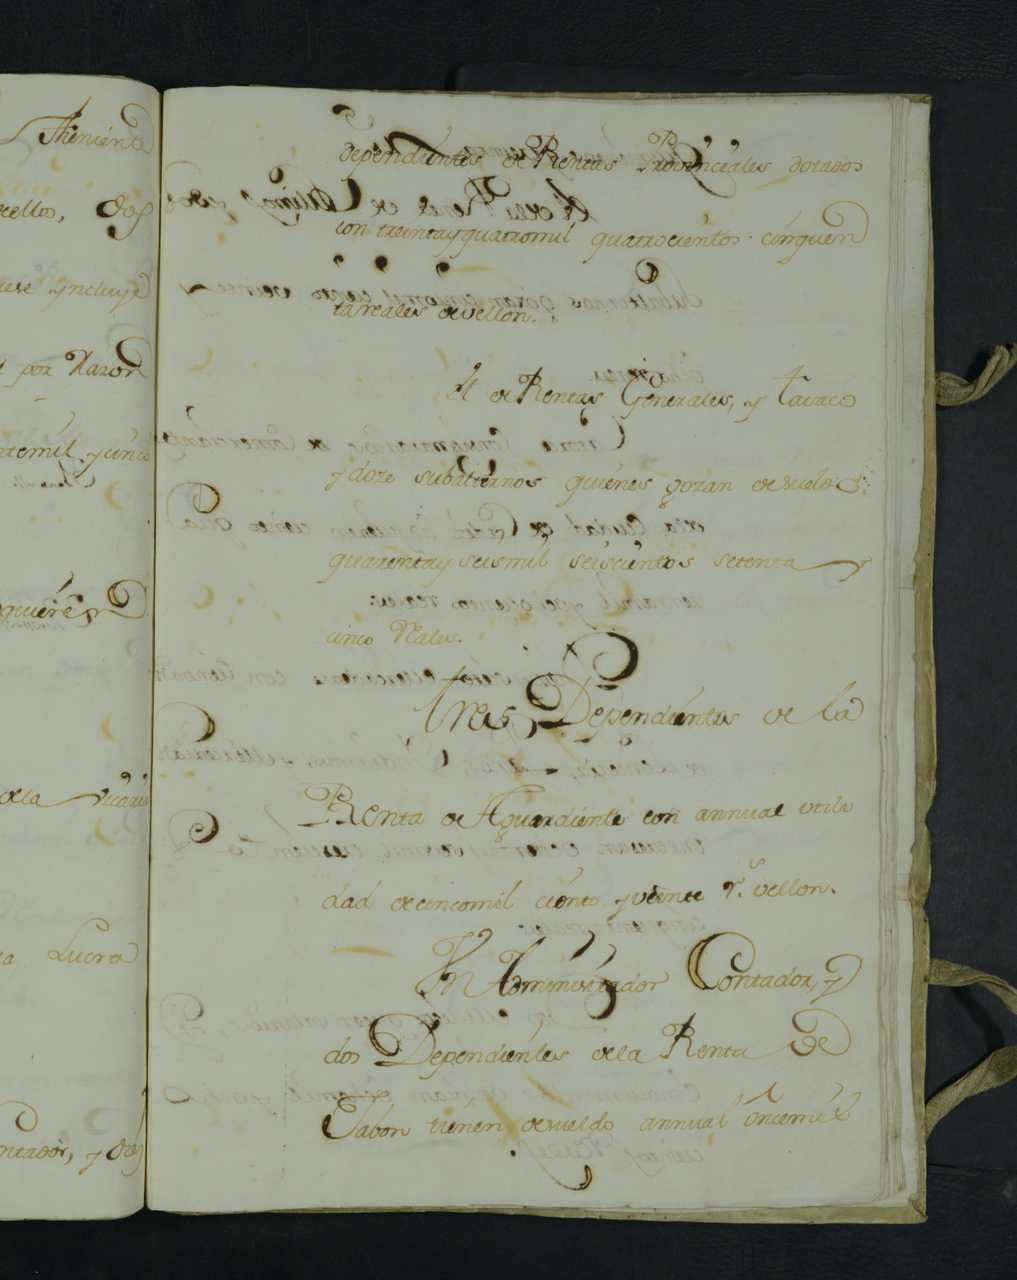 Theniente
dos
yncluye
por Razon
temil y cinco
quiere
dela
Lucro
ntador, y dos
dependientes de Rentas Provinciales dotados
con treinta y quatromil quatrocientos cinquen
ta reales de vellon.
de Rentas Generales, y tavaco
y doze subalternos quienes gozan de sueldo
quarenta y seismil seiscientos setenta y
cinco Reales.
Tres Dependientes de la
Renta de Aguardiente con annual utili
dad de cincomil ciento y veinte rs. vellon.
Un Administrador Contador, y
dos Dependientes de la Renta de
Jabon tienen de sueldo annual oncemil